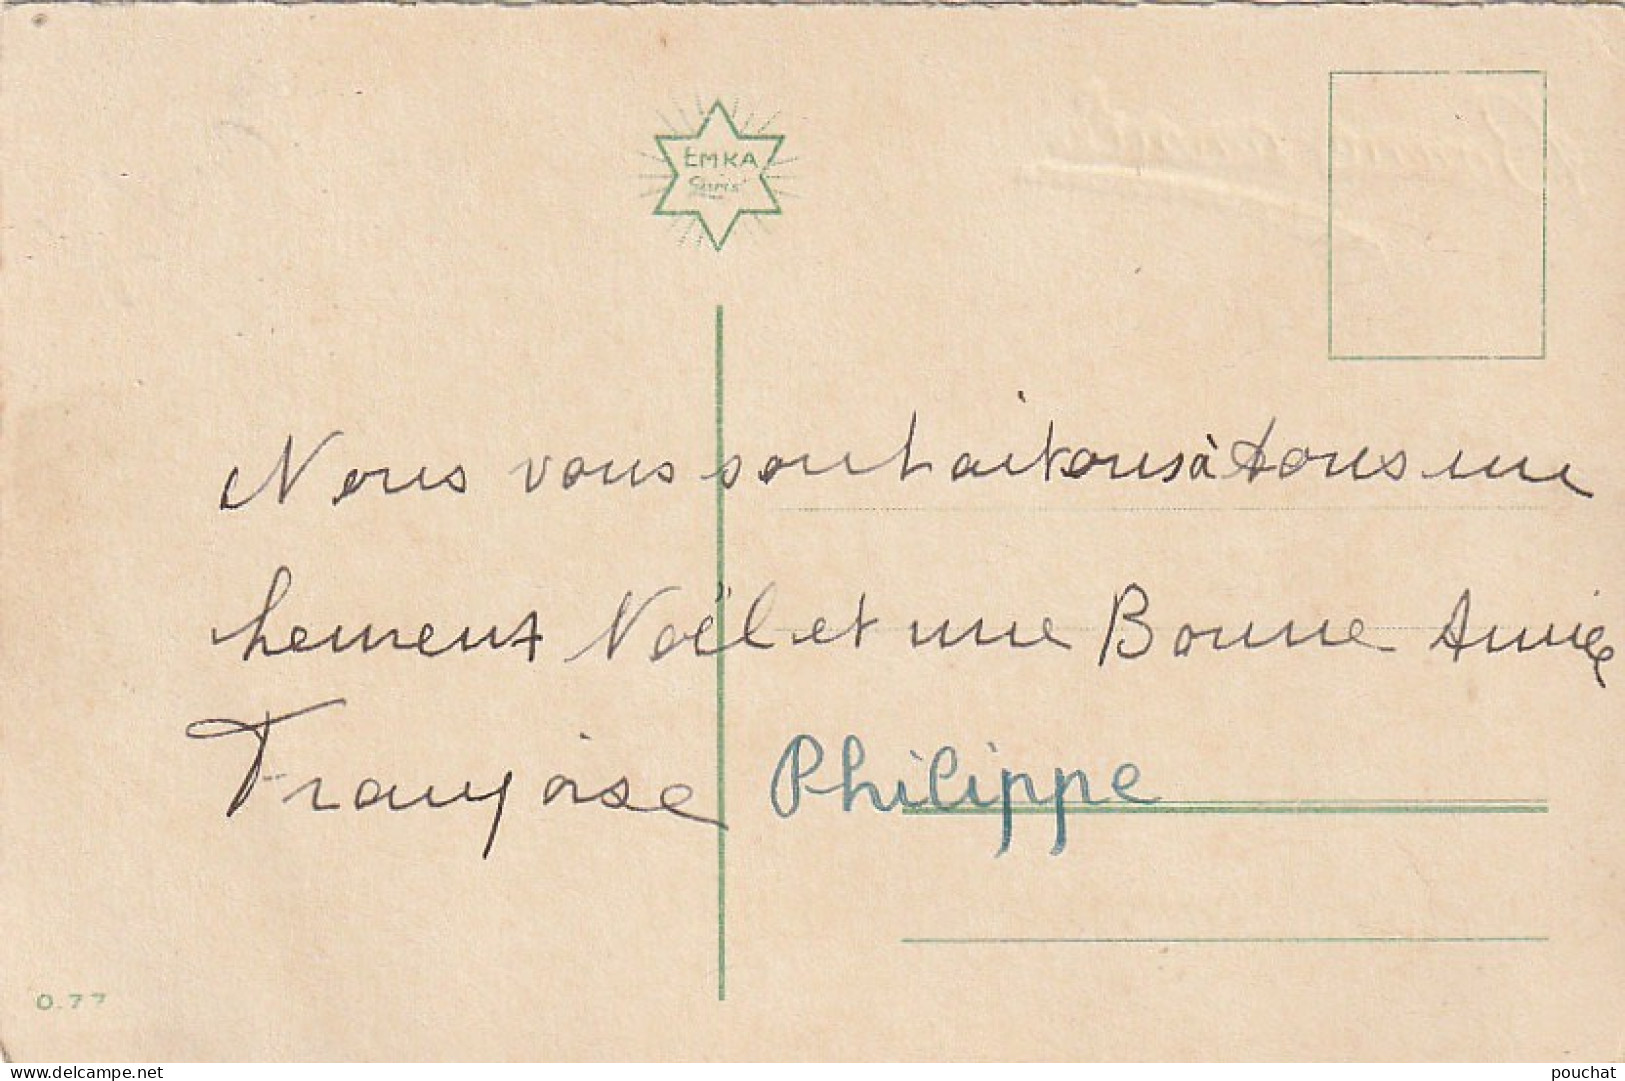 EMKA
Nous vous souhaitons à tous une
heureux Noël et une Bonne Année
Françoise Philippe
0.77
www.delcampe.net
pouchat